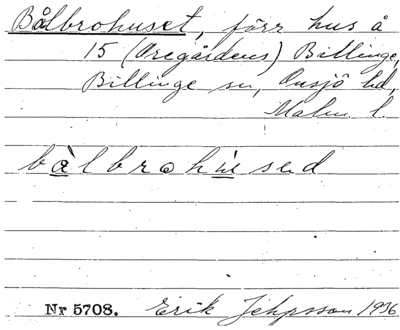 Bålbrohuset, förr hus å
15 (Oregårdens) Billinge,
Billinge sn, Onsjö hd,
Malm. l.
bàlbrohu̇sed
Nr 5708. Erik Jeppsson 1936